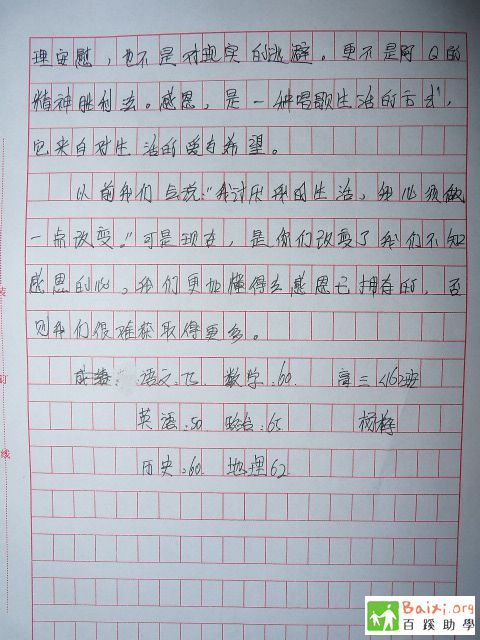 理安慰，也不是对现实的逃避。更不是阿Q的
精神胜利法。感恩，是一种唱歌生活的方式，
它来自对生活的爱与希望。
以前我们总说："我讨厌我的生活，我必须做
一点改变。"可是现在，是你们改变了我们不知
感恩的心，我们更加懂得去感恩已拥有的，否
则我们很难获取得更多。
成绩：语文：75 数学：60 高三<16>班
英语：50 政治：65 杨梅
历史：60 地理62
装
订
线
Baixi.org
百蹊助學